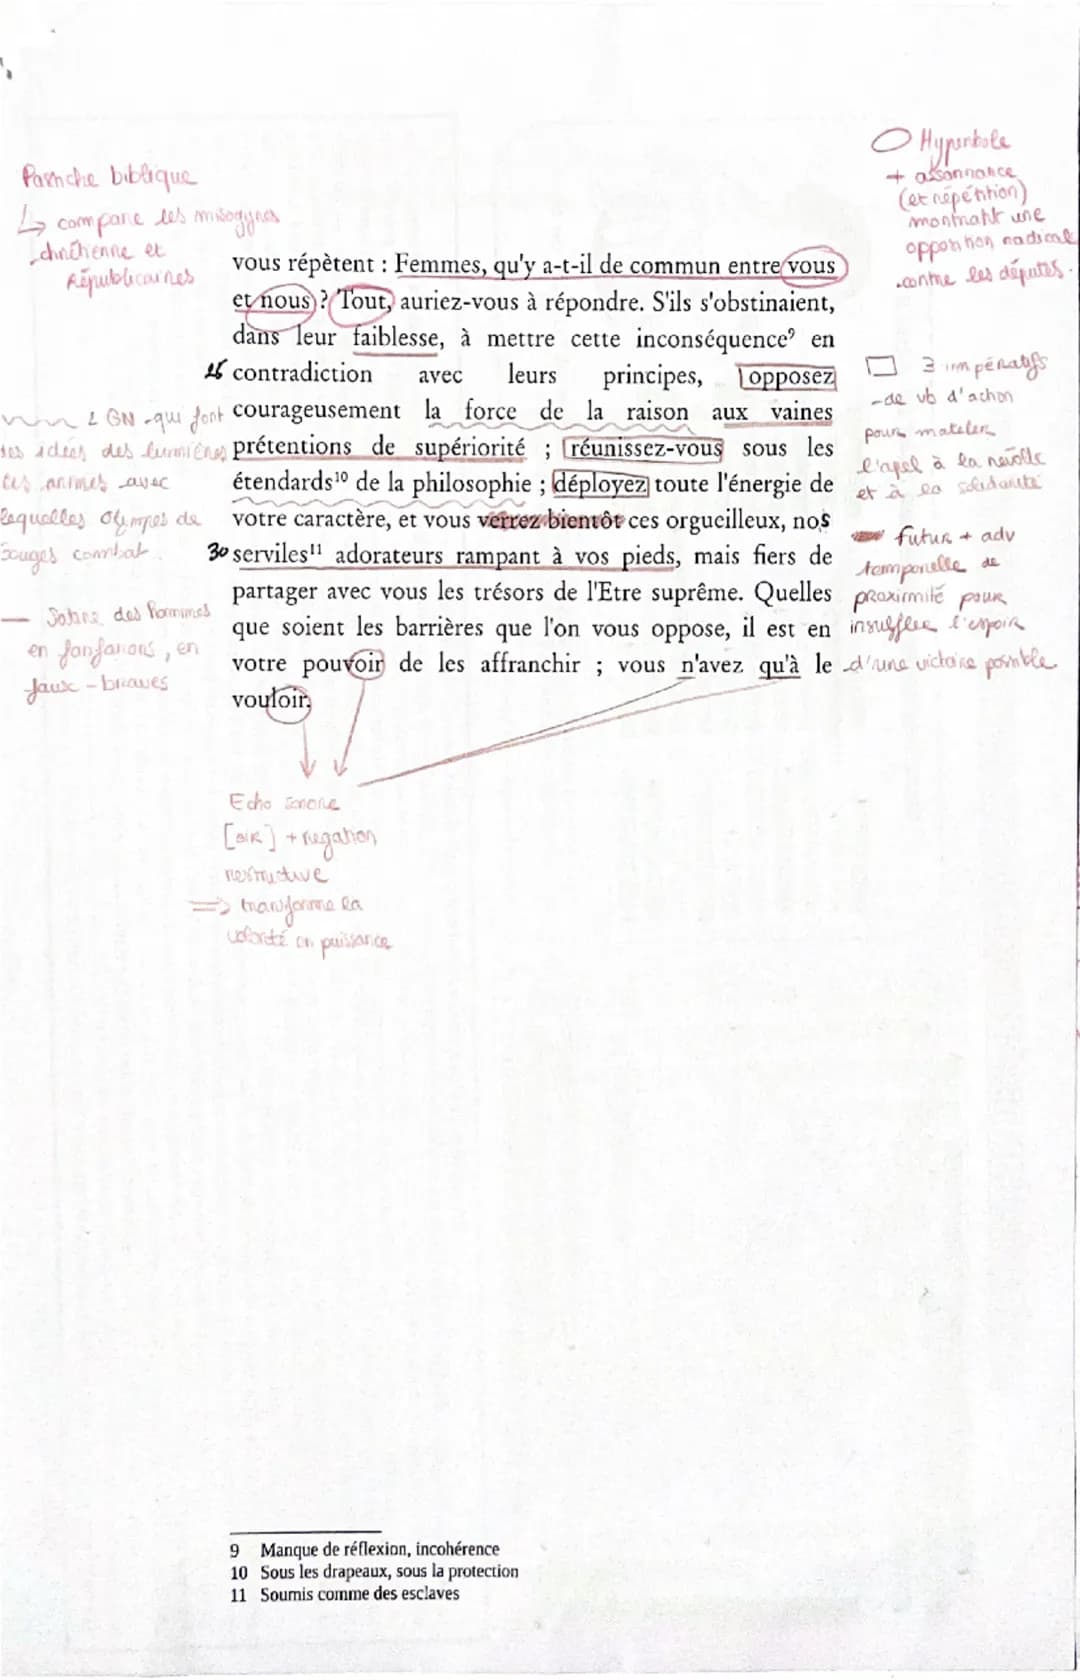 Pastiche biblique
↳ compare les misogynes
chrétienne et
Républicaines
○ Hyperbole
+ assonnance
(et répétition)
montrant une
opposition radicale
contre les députés.
vous répètent : Femmes, qu'y a-t-il de commun entre vous
et nous ? Tout, auriez-vous à répondre. S'ils s'obstinaient,
dans leur faiblesse, à mettre cette inconséquence⁹ en
25 contradiction avec leurs principes, opposez
courageusement la force de la raison aux vaines
prétentions de supériorité ; réunissez-vous sous les
étendards¹⁰ de la philosophie ; déployez toute l'énergie de
votre caractère, et vous verrez bientôt ces orgueilleux, nos
30 serviles¹¹ adorateurs rampant à vos pieds, mais fiers de
partager avec vous les trésors de l'Etre suprême. Quelles
que soient les barrières que l'on vous oppose, il est en
votre pouvoir de les affranchir ; vous n'avez qu'à le
vouloir.
2 GN qui font
des idées des lumières
les armes avec
lesquelles Olympes de
Gouges combat.
— Satire des hommes
en fanfarons, en
faux-braves
□ 3 impératifs
de vb d'action
pour
l'apel à la révolte
et à la solidarité
futur + adv
temporelle de
proximité pour
insuffler l'espoir
d'une victoire possible
Echo sonore
[oir] + négation
restrictive
⇒ transforme la
volonté en puissance
9 Manque de réflexion, incohérence
10 Sous les drapeaux, sous la protection
11 Soumis comme des esclaves